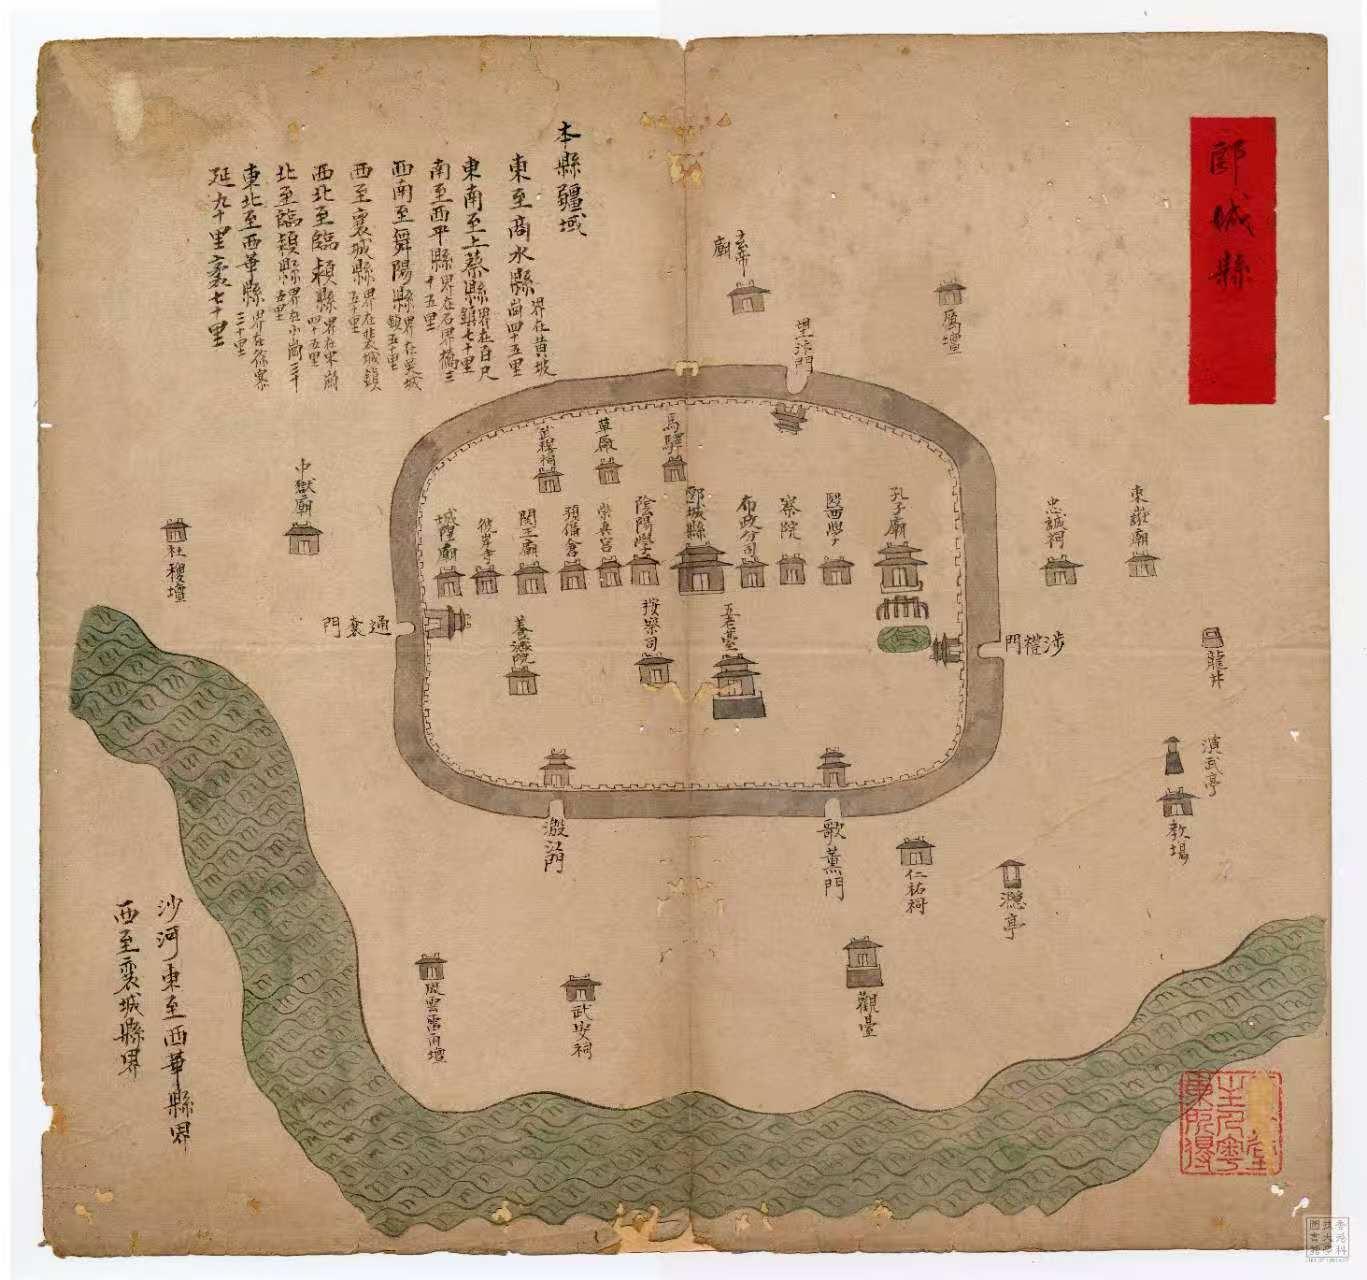 郾城縣
本縣疆域
東至商水縣界在黄坡崗四十五里
東南至上蔡縣界在百尺鎮七十里
南至西平縣界在石界橋三十五里
西南至舞陽縣界在吳城鎮五十里
西至襄城縣界在裴城鎮五十里
西北至臨潁縣界在宋崗四十五里
北至臨潁縣界在小崗三十五里
東北至西華縣界在
三十里
延九十里袤七十里
玄帝廟
厲壇
望汴門
馬驛
草廠
武穆祠
孔子廟
醫學
察院
布政分司
郾城縣
陰陽學
崇真宮
預備倉
関王廟
彼岸寺
城隍廟
五老臺
按察司
養濟院
中嶽廟
社稷壇
忠誠祠
東嶽廟
通襄門
涉禮門
龍井
演武亭
教場
溵江門
歌薰門
仁祐祠
溵亭
觀臺
風雲雷雨壇
武安祠
沙河東至西華縣界
西至襄城縣界
香港科技大學圖書館